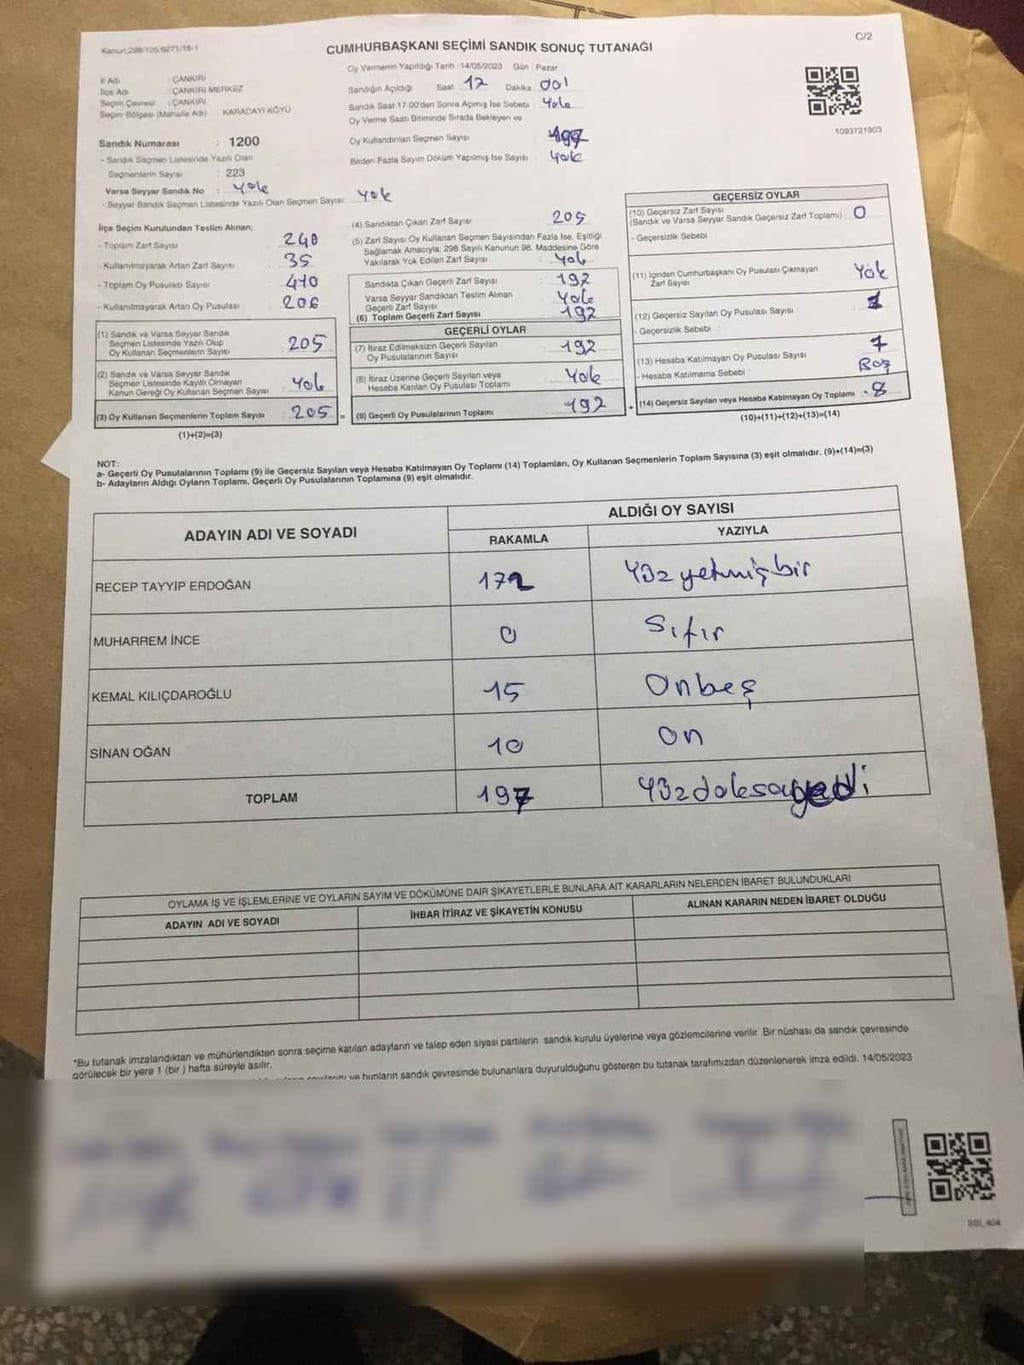 Kanun:298/105,6271/18-1
C/2
CUMHURBAŞKANI SEÇİMİ SANDIK SONUÇ TUTANAĞI
İl Adı : ÇANKIRI
İlçe Adı : ÇANKIRI MERKEZ
Seçim Çevresi : ÇANKIRI
Seçim Bölgesi (Mahalle Adı) : KARADAYI KÖYÜ
Sandık Numarası : 1200
- Sandık Seçmen Listesinde Yazılı Olan
Seçmenlerin Sayısı : 223
Varsa Seyyar Sandık No : Yok
- Seyyar Sandık Seçmen Listesinde Yazılı Olan Seçmen Sayısı: Yok
Oy Vermenin Yapıldığı Tarih :14/05/2023 Gün : Pazar
Sandığın Açıldığı Saat 17 Dakika 001
Sandık Saat 17.00'den Sonra Açımış İse Sebebi Yok
Oy Verme Saati Bitiminde Sırada Bekleyen ve
Oy Kullandırılan Seçmen Sayısı
Birden Fazla Sayım Döküm Yapılmış İse Sayısı : Yok
1093721903
İlçe Seçim Kurulundan Teslim Alınan;
- Toplam Zarf Sayısı : 240
- Kullanılmayarak Artan Zarf Sayısı : 35
- Toplam Oy Pusulası Sayısı : 410
- Kullanılmayarak Artan Oy Pusulası : 206
(1) Sandık ve Varsa Seyyar Sandık
Seçmen Listesinde Yazılı Olup
Oy Kullanan Seçmenlerin Sayısı : 205
(2) Sandık ve Varsa Seyyar Sandık
Seçmen Listesinde Kayıtlı Olmayan
Kanun Gereği Oy Kullanan Seçmen Sayısı Yok
(3) Oy Kullanan Seçmenlerin Toplam Sayısı : 205
(1)+(2)=(3)
(4) Sandıktan Çıkan Zarf Sayısı : 205
(5) Zarf Sayısı Oy Kullanan Seçmen Sayısından Fazla İse, Eşitliği
Sağlamak Amacıyla; 298 Sayılı Kanunun 98. Maddesine Göre
Yakılarak Yok Edilen Zarf Sayısı : Yok
Sandıkta Çıkan Geçerli Zarf Sayısı : 192
Varsa Seyyar Sandıktan Teslim Alınan
Geçerli Zarf Sayısı : Yok
(6) Toplam Geçerli Zarf Sayısı : 192
GEÇERLİ OYLAR
(7) İtiraz Edilmeksizin Geçerli Sayılan
Oy Pusulalarının Sayısı : 192
(8) İtiraz Üzerine Geçerli Sayılan veya
Hesaba Katılan Oy Pusulası Toplamı : Yok
(9) Geçerli Oy Pusulalarının Toplamı : 192
GEÇERSİZ OYLAR
(10) Geçersiz Zarf Sayısı
(Sandık ve Varsa Seyyar Sandık Geçersiz Zarf Toplamı) : 0
- Geçersizlik Sebebi :
(11) İçinden Cumhurbaşkanı Oy Pusulası Çıkmayan
Zarf Sayısı Yok
(12) Geçersiz Sayılan Oy Pusulası Sayısı : 1
- Geçersizlik Sebebi :
(13) Hesaba Katılmayan Oy Pusulası Sayısı : 7
- Hesaba Katılmama Sebebi : Boş
(14) Geçersiz Sayılan veya Hesaba Katılmayan Oy Toplamı : 8
(10)+(11)+(12)+(13)=(14)
NOT:
a- Geçerli Oy Pusulalarının Toplamı (9) ile Geçersiz Sayılan veya Hesaba Katılmayan Oy Toplamı (14) Toplamları, Oy Kullanan Seçmenlerin Toplam Sayısına (3) eşit olmalıdır. (9)+(14)=(3)
b- Adayların Aldığı Oyların Toplamı, Geçerli Oy Pusulalarının Toplamına (9) eşit olmalıdır.
ADAYIN ADI VE SOYADI
ALDIĞI OY SAYISI
RAKAMLA YAZIYLA
RECEP TAYYİP ERDOĞAN 172 Yüz yetmiş bir
MUHARREM İNCE 0 Sıfır
KEMAL KILIÇDAROĞLU 15 Onbeş
SİNAN OĞAN 10 on
TOPLAM 197 Yüzdoksanyedi
OYLAMA İŞ VE İŞLEMLERİNE VE OYLARIN SAYIM VE DÖKÜMÜNE DAİR ŞİKAYETLERLE BUNLARA AİT KARARLARIN NELERDEN İBARET BULUNDUKLARI
ADAYIN ADI VE SOYADI İHBAR İTİRAZ VE ŞİKAYETİN KONUSU ALINAN KARARIN NEDEN İBARET OLDUĞU
*Bu tutanak imzalandıktan ve mühürlendikten sonra seçime katılan adayların ve talep eden siyasi partilerin sandık kurulu üyelerine veya gözlemcilerine verilir. Bir nüshası da sandık çevresinde
görülecek bir yere 1 (bir ) hafta süreyle asılır.
ve bunların sandık çevresinde bulunanlara duyurulduğunu gösteren bu tutanak tarafımızdan düzenlenerek imza edildi. 14/05/2023